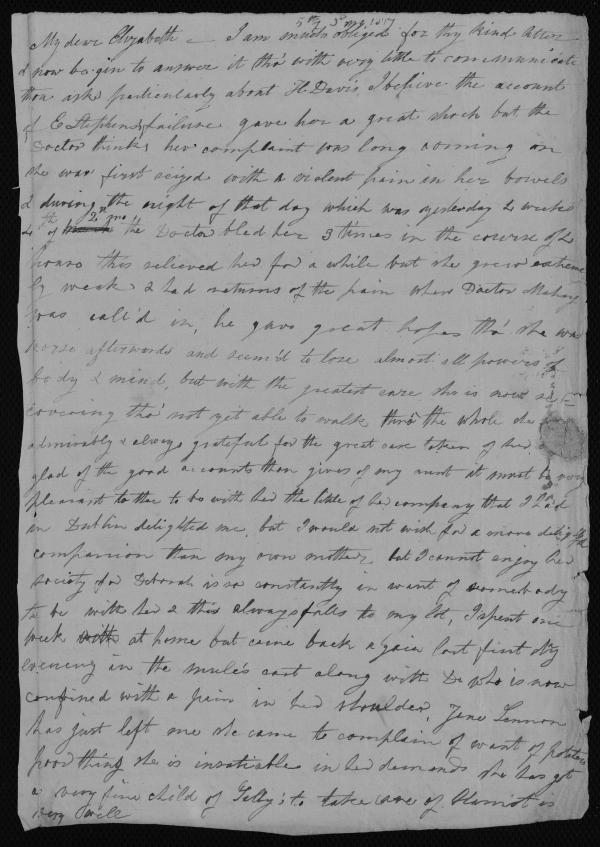 5th of 3rd mo. 1817
My dear Elizabeth — I am much obliged for thy kind letter
& now begin to answer it tho' with very little to communicate
thou asks particularly about H Davis, I believe the account
of E Stephens's failure gave her a great shock but the
Doctor thinks her complaint was long coming on
she was first seized with a violent pain in her bowels
& during the night of that day which was yesterday 2 weeks
4th of 2nd mo the Doctor bled her 3 times in the course of 2
hours this relieved her for a while but she grew extreme
ly weak & had returns of the pain when Doctor
was call'd in, he gave great hopes tho' she was
worse afterwards and seem'd to lose almost all powers of
body & mind, but with the greatest care she is now re=
covering tho' not yet able to walk thro' the whole she
admirably & always grateful for the great care taken of her.
glad of the good accounts thou gives of my aunt it must be very
pleasant to thee to be with her the little of her company that I had
in Dublin delighted me, but I would not wish for a more delightful
companion than my own mother, but I cannot enjoy her
society for Deborah is so constantly in want of somebody
to be with her & this always falls to my lot, I spent one
week with at home but came back again last first day
evening in the mule's cart along with D who is now
confined with a pain in her shoulder, Jane Lennon
has just left me she came to complain of want of potatoes
poor thing she is insatiable in her demands she has got
a very fine child of to take care of is
very well